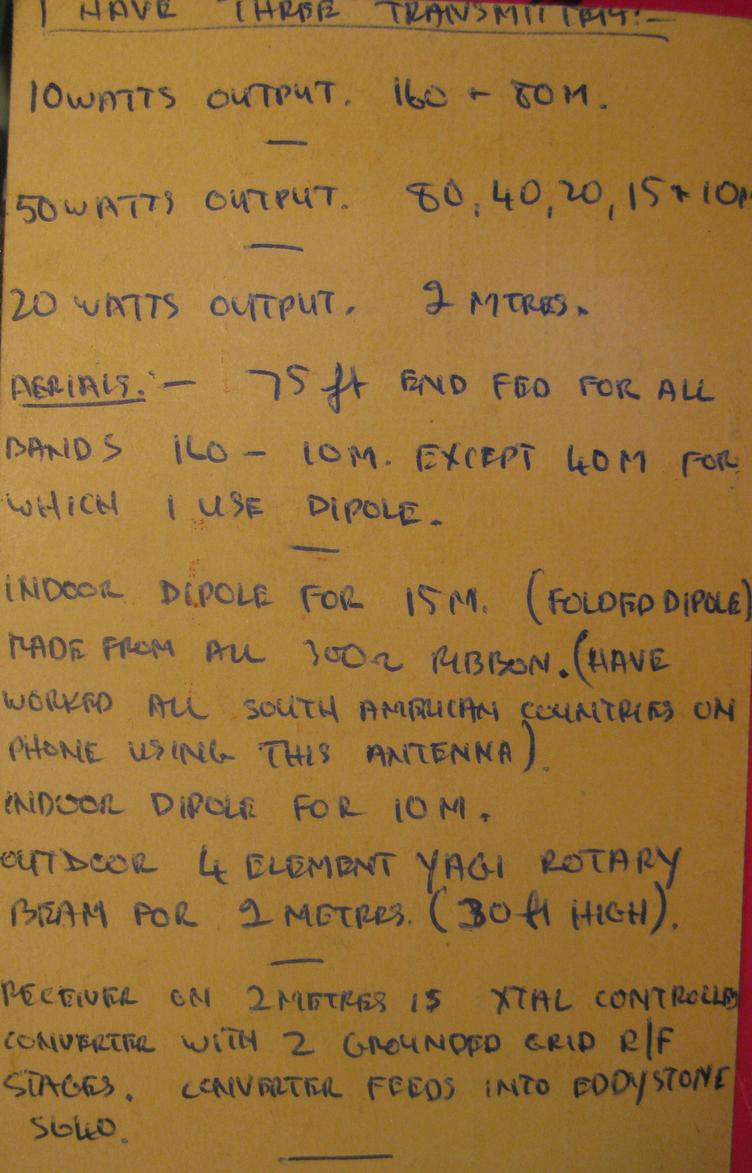 I HAVE THREE TRANSMITTERS:-
10 WATTS OUTPUT. 160 + 80 M.
50 WATTS OUTPUT. 80, 40, 20, 15 + 10M
20 WATTS OUTPUT. 2 MTRES.
AERIALS:- 75 ft END FED FOR ALL
BANDS 160 - 10 M. EXCEPT 40 M FOR
WHICH I USE DIPOLE.
INDOOR DIPOLE FOR 15 M. (FOLDED DIPOLE)
MADE FROM ALL 300Ω RIBBON. (HAVE
WORKED ALL SOUTH AMERICAN COUNTRIES ON
PHONE USING THIS ANTENNA).
INDOOR DIPOLE FOR 10 M.
OUTDOOR 4 ELEMENT YAGI ROTARY
BEAM FOR 2 METRES. (30 ft HIGH).
RECEIVER ON 2 METRES IS XTAL CONTROLLED
CONVERTER WITH 2 GROUNDED GRID R/F
STAGES. CONVERTER FEEDS INTO EDDYSTONE
S640.